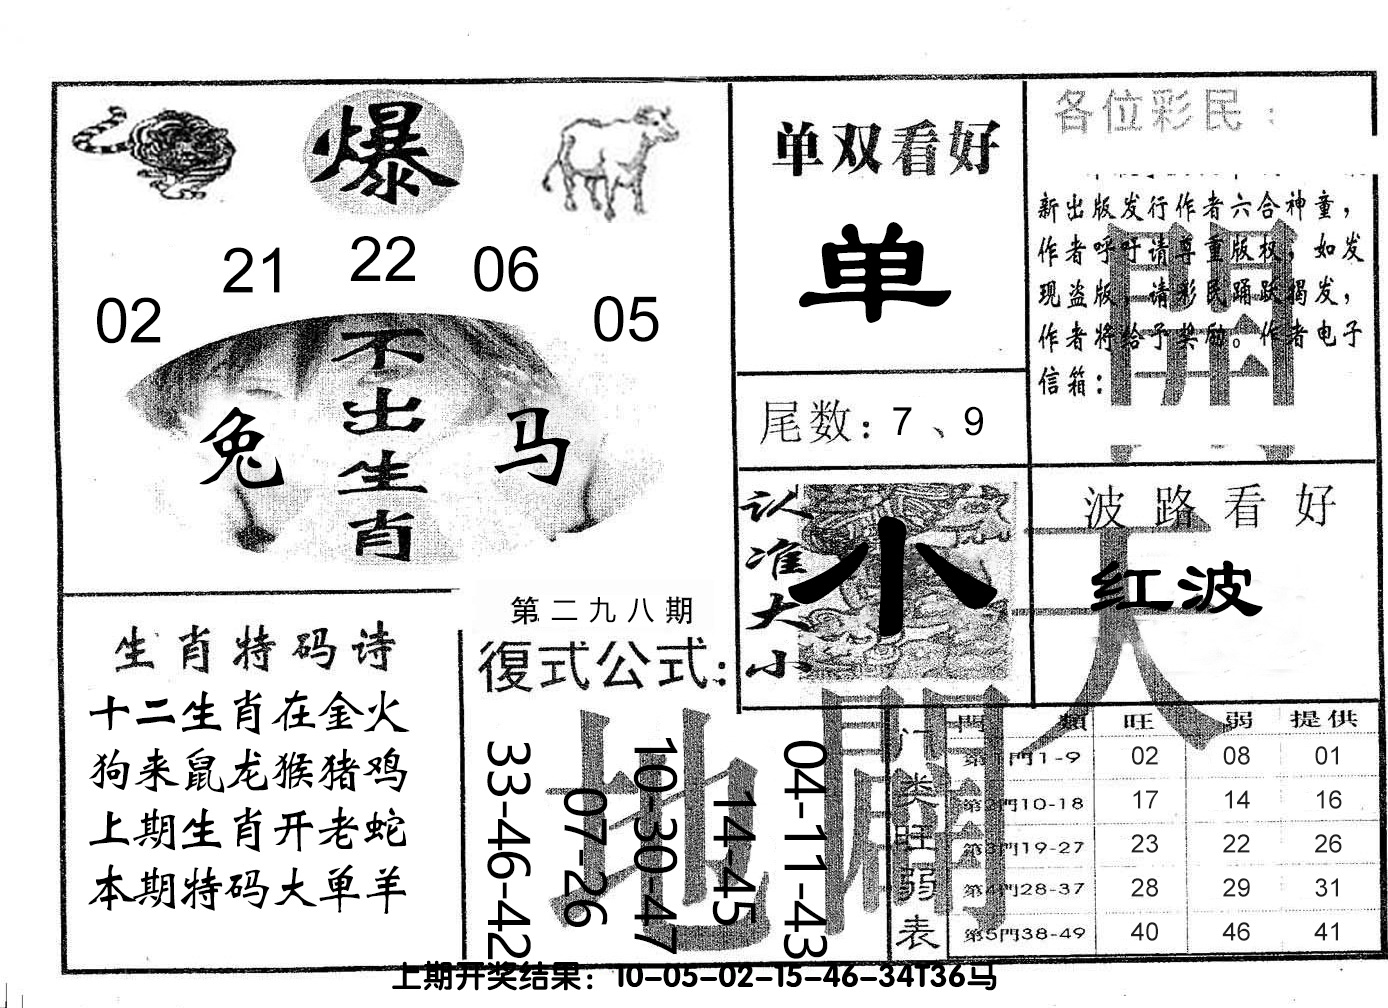 爆
02 21 22 06 05
不出生肖
兔 马
单双看好
单
尾数：7、9
各位彩民：
新出版发行作者六合神童，
作者呼吁请尊重版权，如发
现盗版，请彩民踊跃揭发，
作者将给予奖励。作者电子
信箱：
開
认准大小
小
波路看好
红波
天
生肖特码诗
十二生肖在金火
狗来鼠龙猴猪鸡
上期生肖开老蛇
本期特码大单羊
第二九八期
復式公式：
33-46-42
07-26
10-30-47
14-45
04-11-43
地
門类旺弱表
門類 旺 弱 提供
第1門1-9 02 08 01
第2門10-18 17 14 16
第3門19-27 23 22 26
第4門28-37 28 29 31
第5門38-49 40 46 41
上期开奖结果：10-05-02-15-46-34T36马